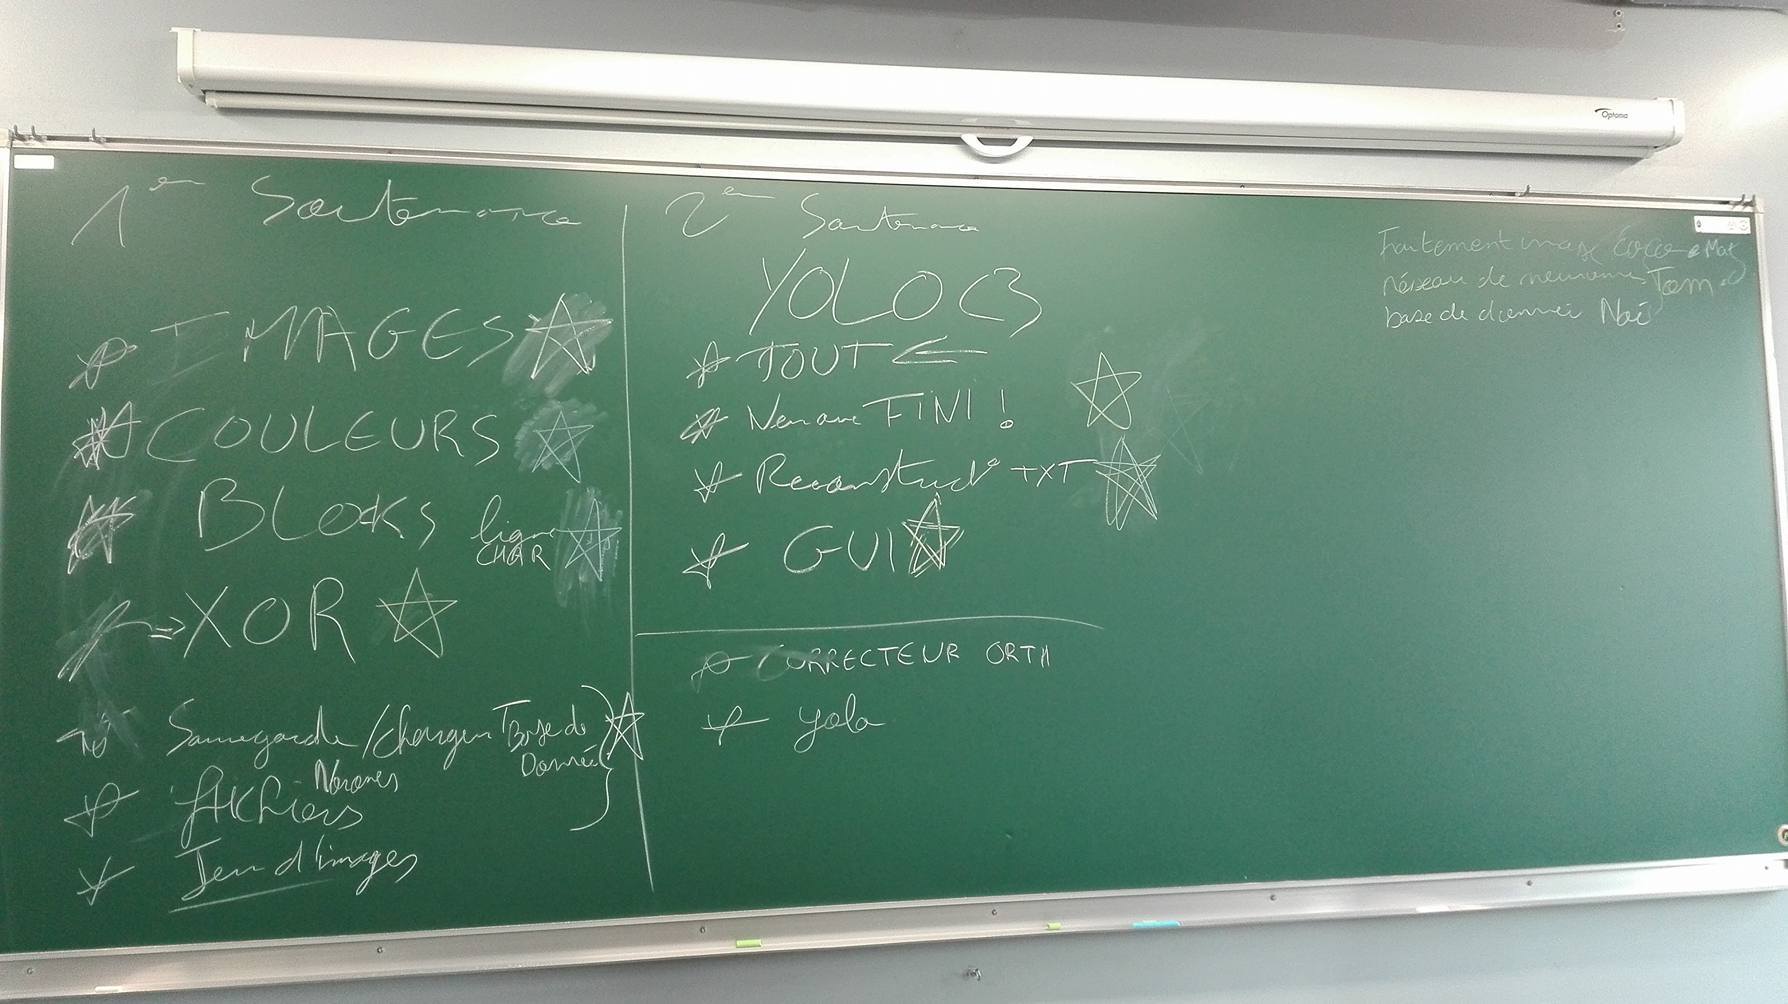 Optoma
1er Soutenance
IMAGES
COULEURS
BLOCKS ligne
CHAR
=> XOR
Sauvegarde / Charger Base de
Donnée
Fichiers
Jeu d'images
2em Soutenance
YOLO <3
TOUT <=
Neurone FINI !
Reconstruct° TXT
GUI
CORRECTEUR ORTH
yolo
Traitement image
réseau de neurone Tom
base de donnée